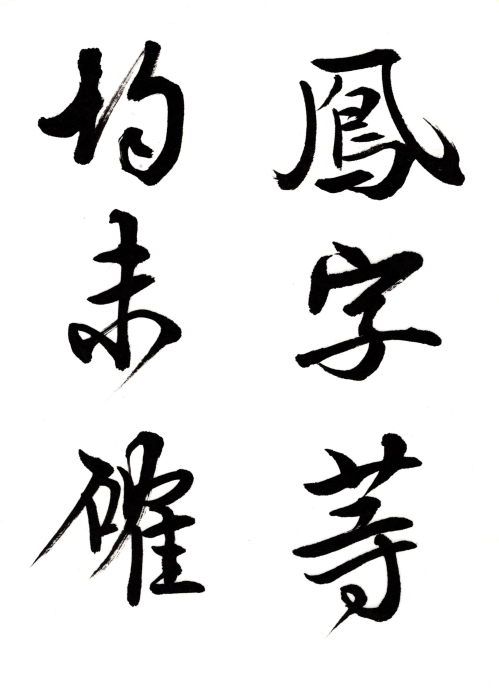 鳳字等
均未確